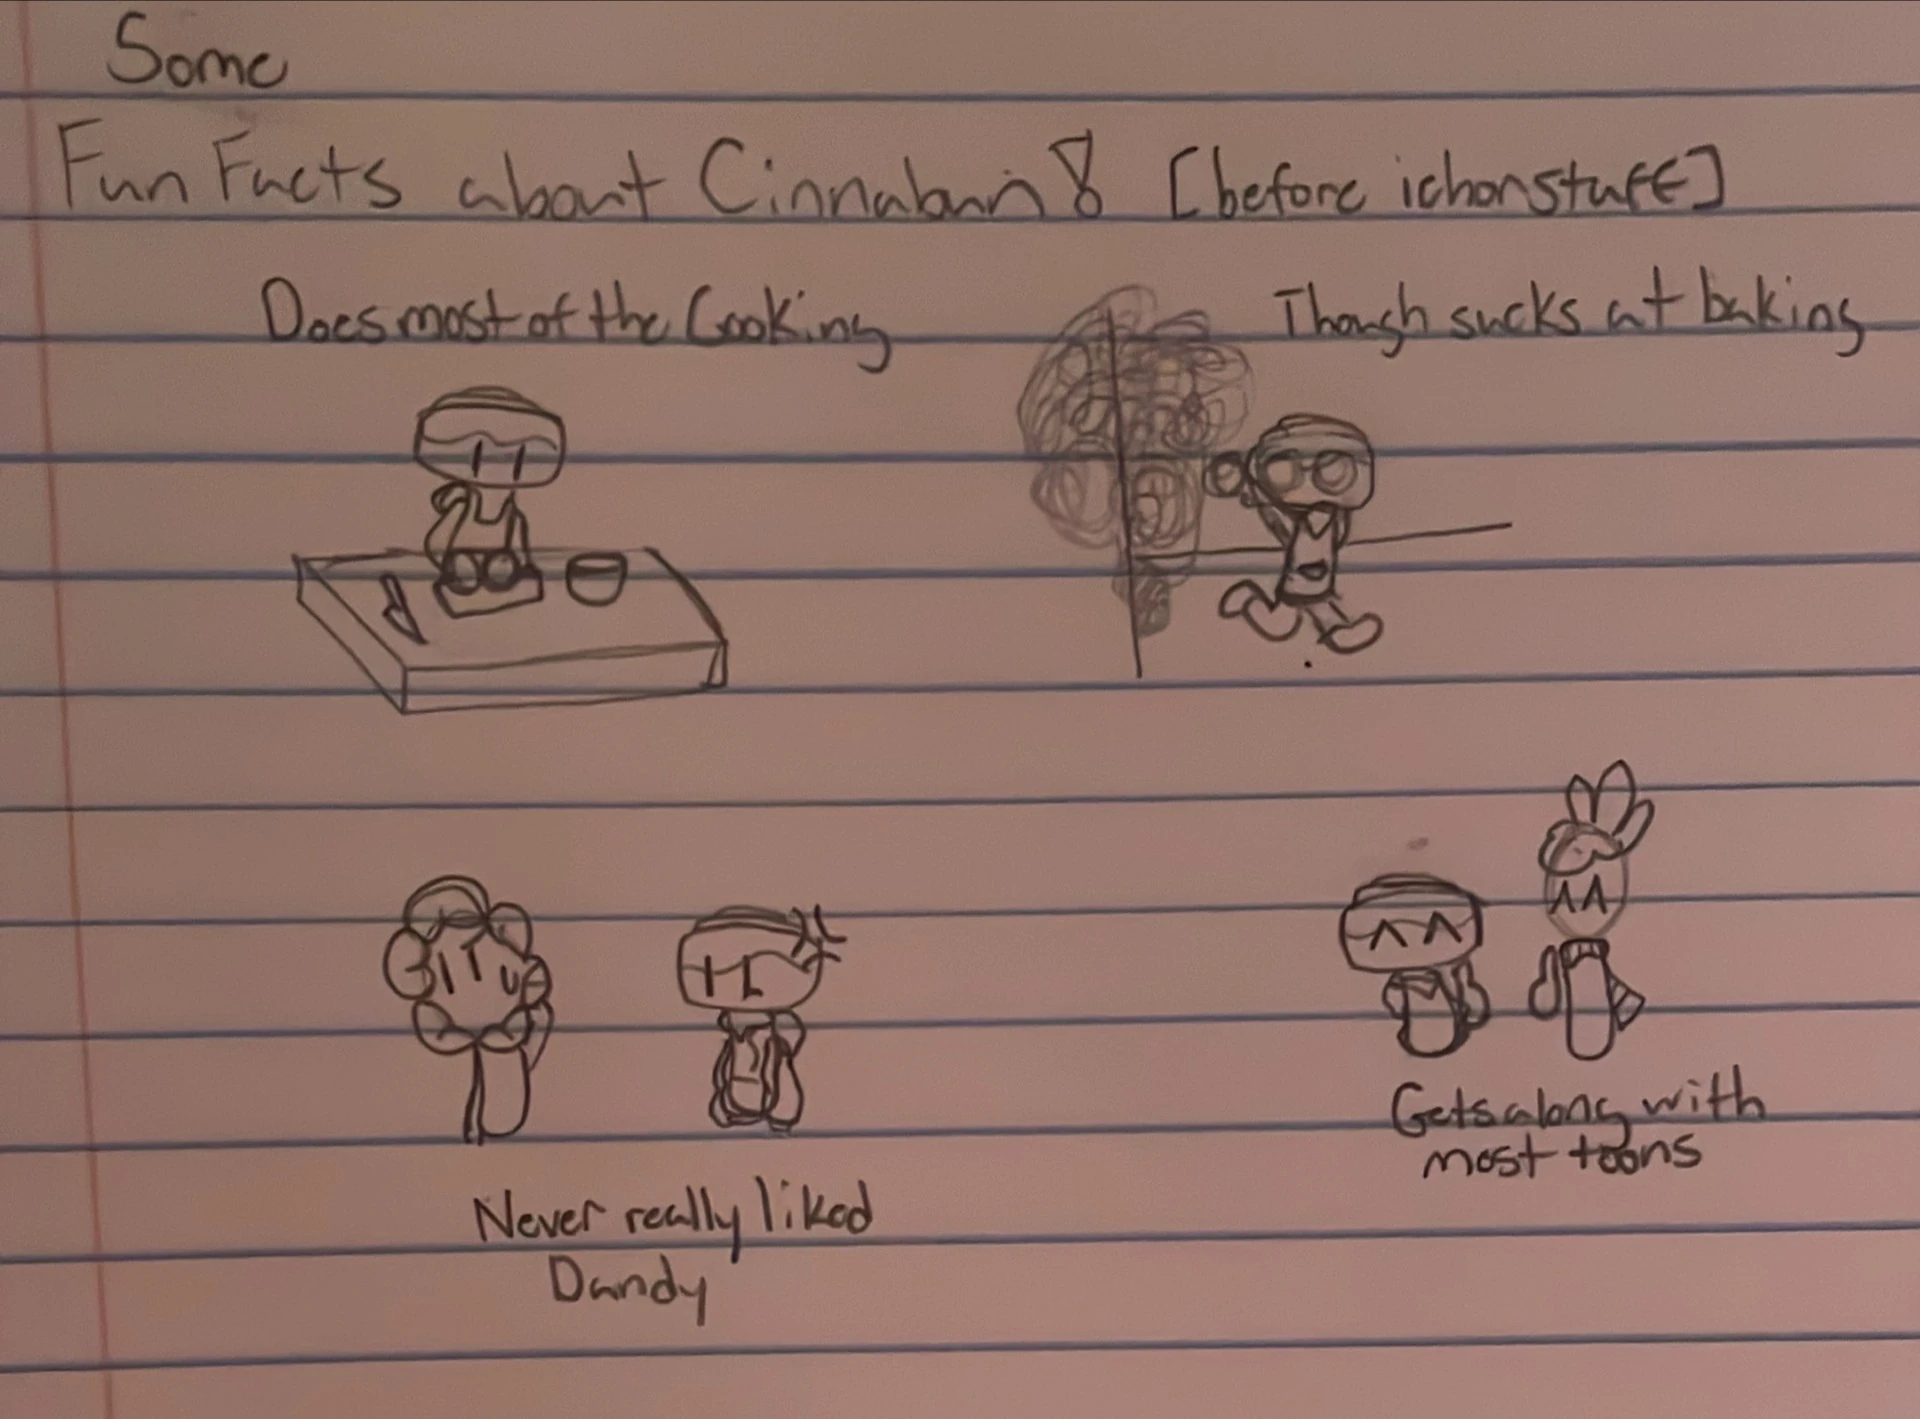 Some
Fun Facts about Cinnabun! [before ichor stuff]
Does most of the Cooking
Though sucks at baking
Gets along with
most toons
Never really liked
Dandy